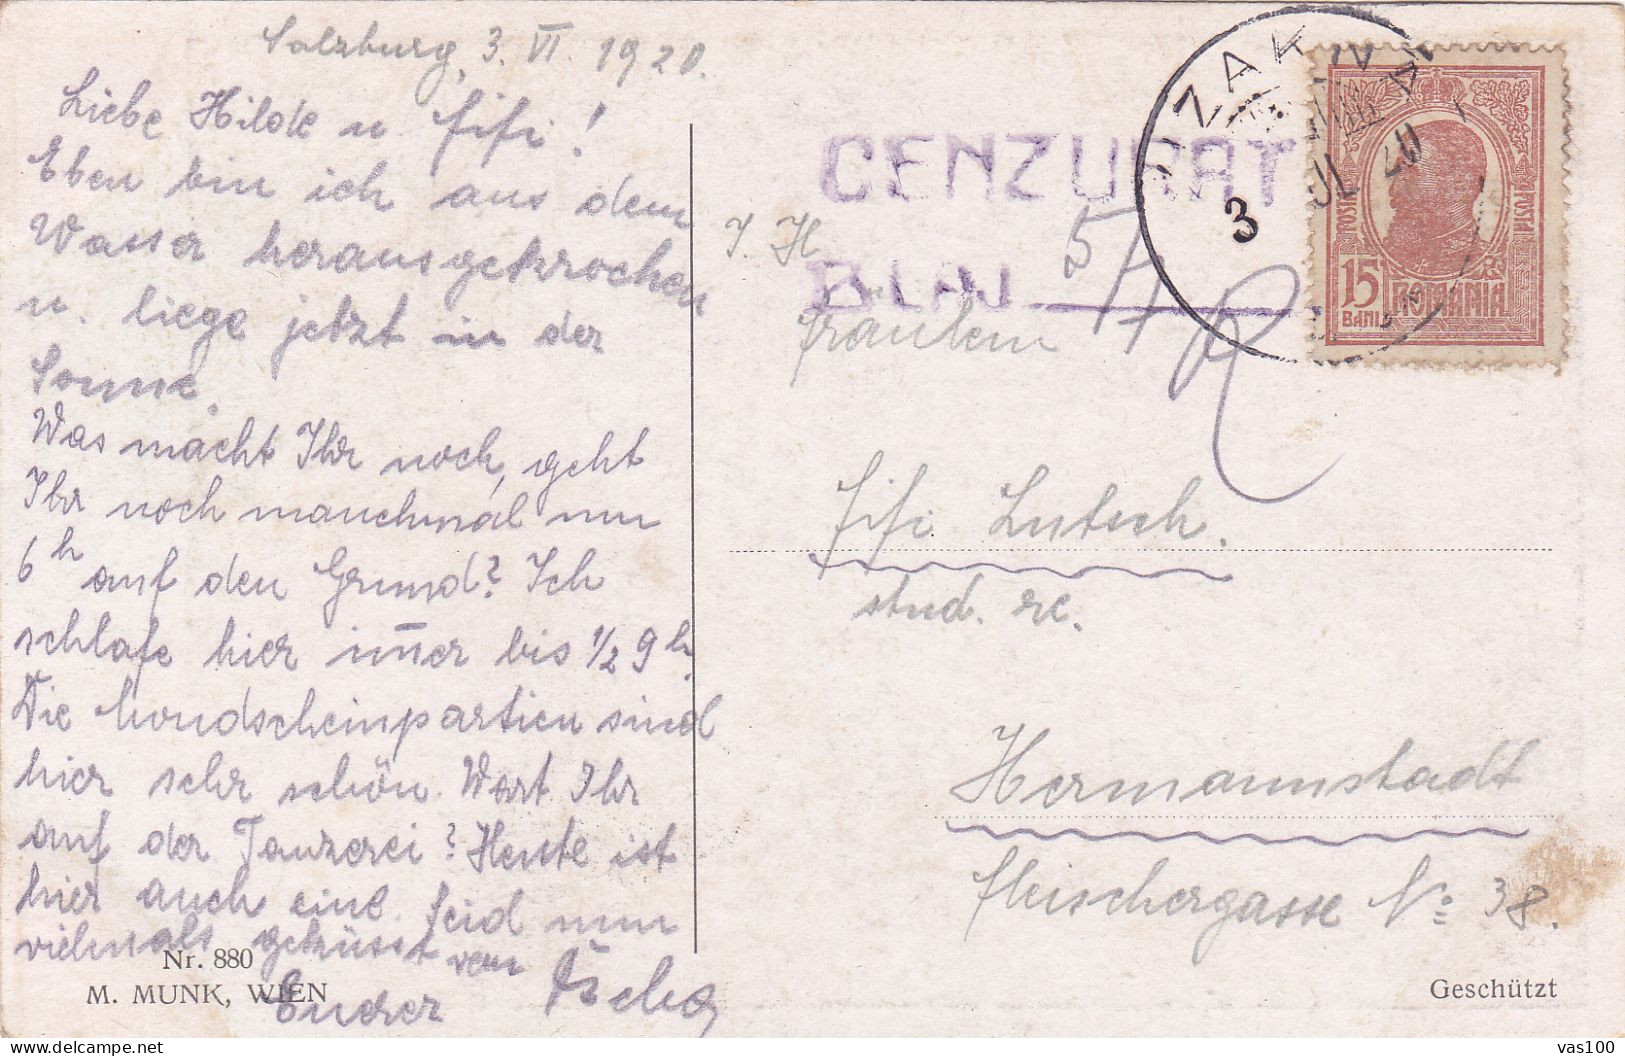 Salzburg, 3. VI. 1920.
Liebe Hilde u. Fifi!
Eben bin ich aus dem
Wasser herausgekrochen
u. liege jetzt in der
Sonne.
Was macht Ihr noch, geht
Ihr noch manchmal um
6h auf den Grund? Ich
schlafe hier im̅er bis 1/2 9h.
Die Mondscheinpartien sind
hier sehr schön. Wart Ihr
auf der Tanzerei? Heute ist
hier auch eine. Seid nun
vielmals geküsst von
Euerer
Nr. 880
M. MUNK, WIEN
CENZURAT
BLAJ
3 JUL 20
POSTA
POSTA
15
BANI
ROMANIA
Fräulein
Fifi Lutsch.
stud. re.
Hermannstadt
Fleischergasse No: 38.
Geschützt
delcampe.net
vas100